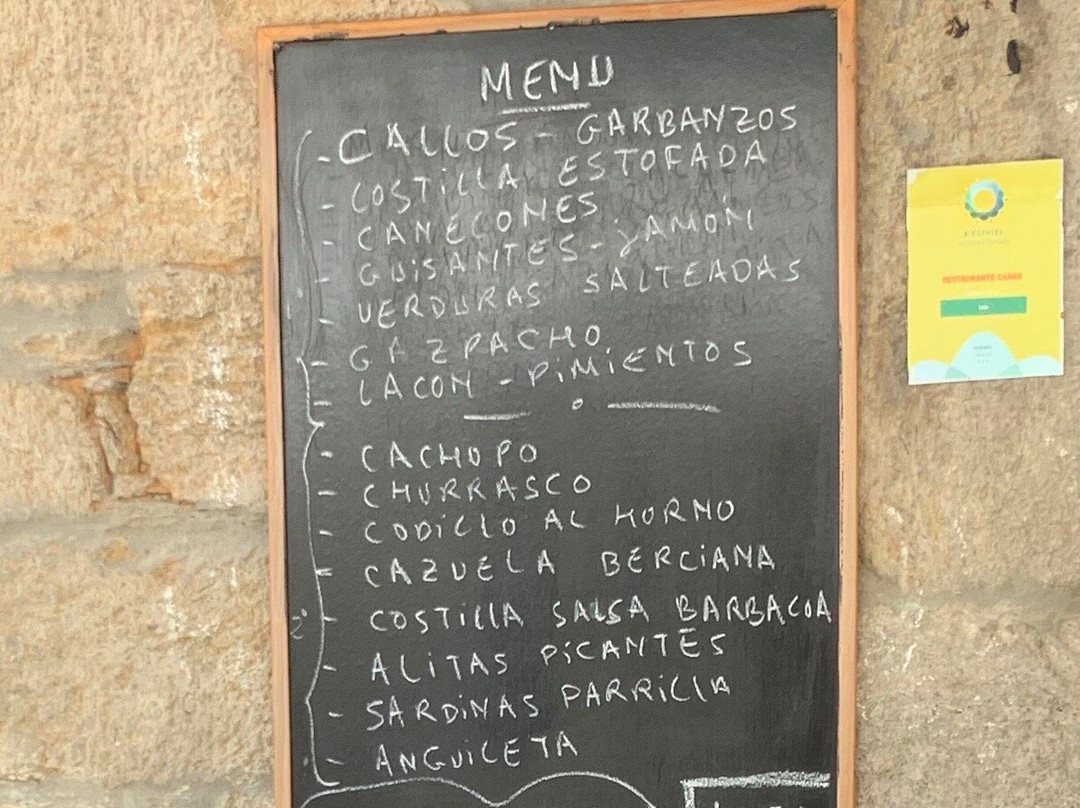 MENU
- CALLOS - GARBANZOS
- COSTILLA ESTOFADA
- CANELONES
- GUISANTES - JAMON
- VERDURAS SALTEADAS
- GAZPACHO
- LACON - PIMIENTOS
- CACHOPO
- CHURRASCO
- CODILLO AL HORNO
- CAZUELA BERCIANA
- COSTILLA SALSA BARBACOA
- ALITAS PICANTES
- SARDINAS PARRILLA
- ANGUILETA
RESTAURANTE